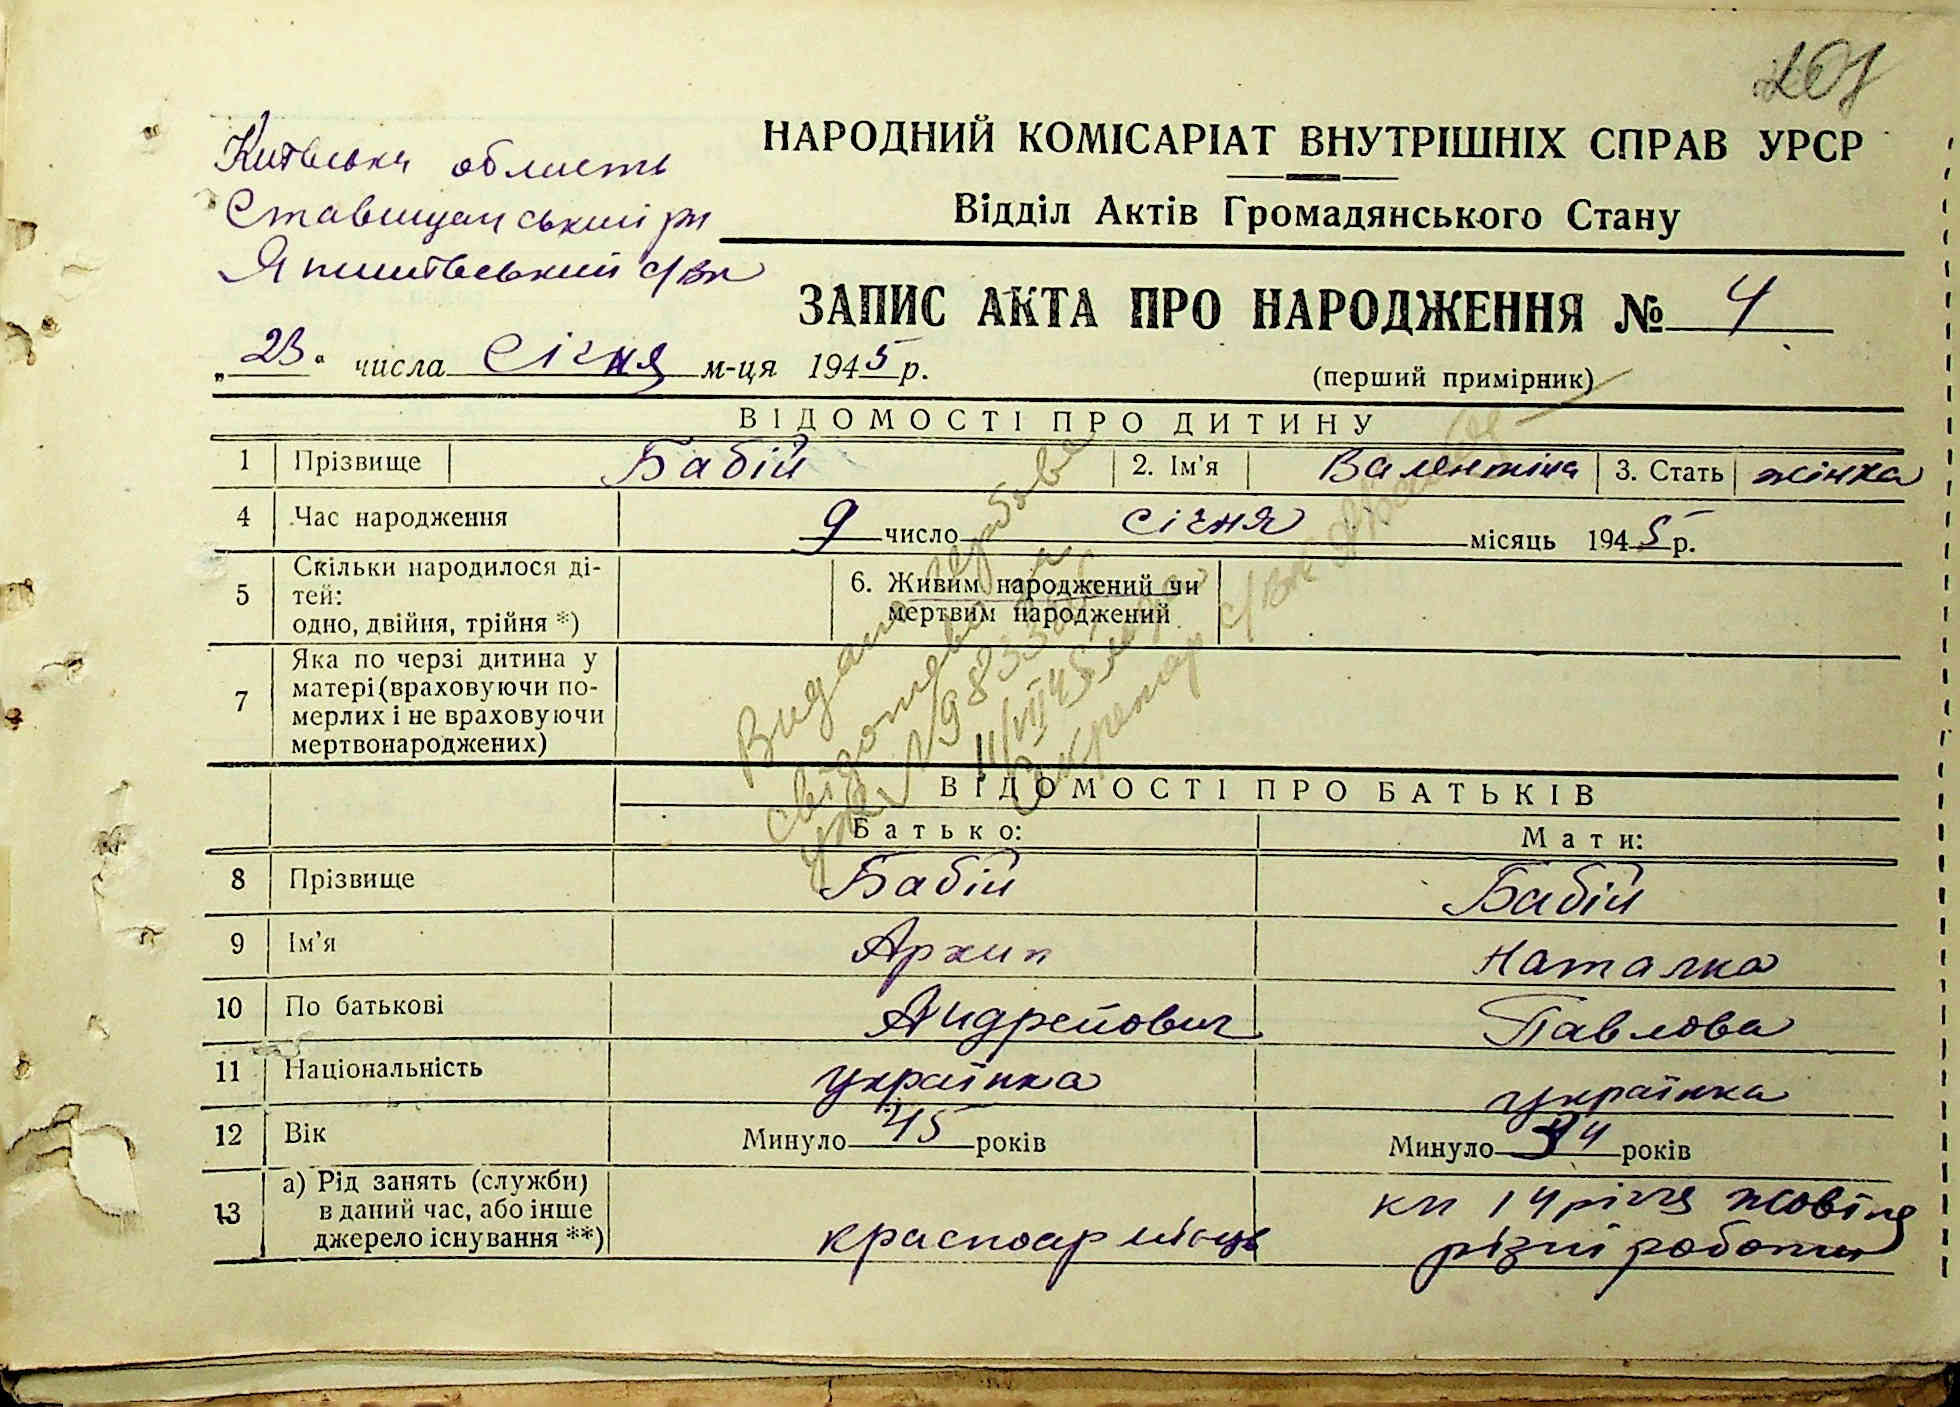 207
Київська область
Ставищанський рн
Япишівський с/вк
НАРОДНИЙ КОМІСАРІАТ ВНУТРІШНІХ СПРАВ УРСР
Відділ Актів Громадянського Стану
ЗАПИС АКТА ПРО НАРОДЖЕННЯ № 4
„23“ числа Січня м-ця 1945 р.
(перший примірник)
ВІДОМОСТІ ПРО ДИТИНУ
1 Прізвище Бабій 2. Ім'я Валентіна 3. Стать жінка
4 Час народження 9 число січня місяць 1945 р.
5 Скільки народилося ді-
тей:
одно, двійня, трійня *)
6. Живим народжений чи
мертвим народжений
7 Яка по черзі дитина у
матері (враховуючи по-
мерлих і не враховуючи
мертвонароджених)
Видано гербове
свідоцтво
11/VII 45 года
Секретар с/вк
ВІДОМОСТІ ПРО БАТЬКІВ
Батько: Мати:
8 Прізвище Бабій Бабій
9 Ім'я Архип Наталка
10 По батькові Андрейович Павлова
11 Національність українка українка
12 Вік Минуло 45 років Минуло 34 років
13 а) Рід занять (служби)
в даний час, або інше
джерело існування **)
красноармієць
кп 14 річчя жовтня
різні роботи